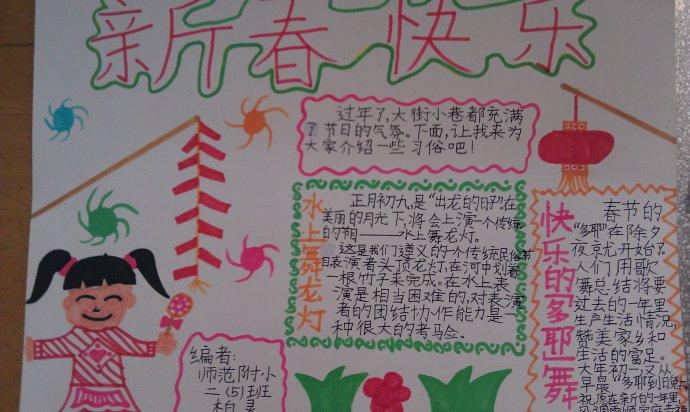 新春快乐
过年了,大街小巷都充满
了节日的气氛。下面,让我来为
大家介绍一些习俗吧!
水上舞龙灯
正月初九,是“出龙的日子”在
美丽的月光下,将会上演一个传统
的节目——水上舞龙灯。
这是我们遵义的一个传统民俗节
目表演者头顶龙灯,在河中划着
一根竹子来完成。在水上表
演是相当困难的,对表演
者的团结协作能力是一
种很大的考马佥。
快乐的多耶舞
春节的
“多耶”在除夕
夜京尤开始了。
人们用歌
舞总结将要
过去的一年里
生产生活情况,
赞美家乡和
生活的富足。
大年初一,又从
早晨“多耶到日晚
祝愿在新的一年里
编者:
师范附小
二(5)班